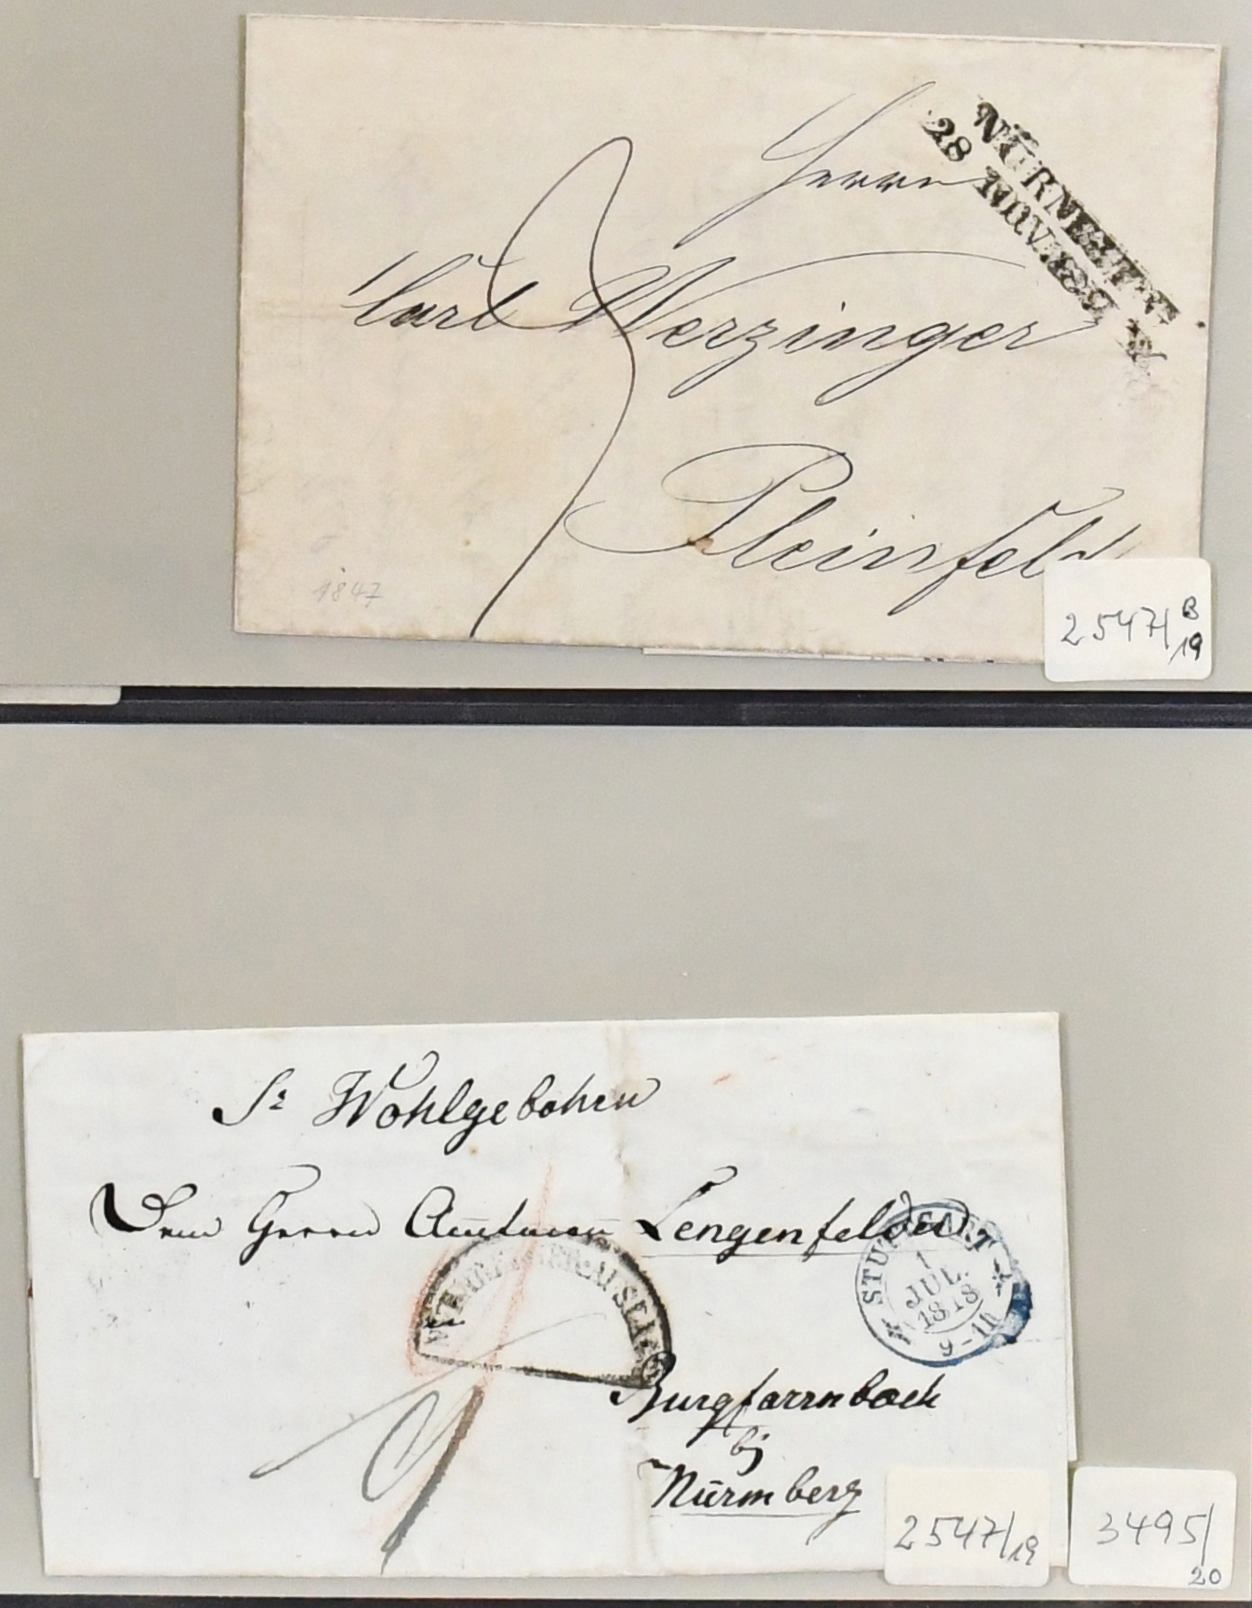 NÜRNBERG
28 NOV.
Herrn
Carl Werzinger
Pleinfeld
1847
2547/B
19
Sr Wohlgebohren
Dem Herrn Amtman Lengenfelder
STUTTGART
1
JUL.
1848
9-10
Burgfarrnbach
bij
Nürmberg
2547/19
3495/
20